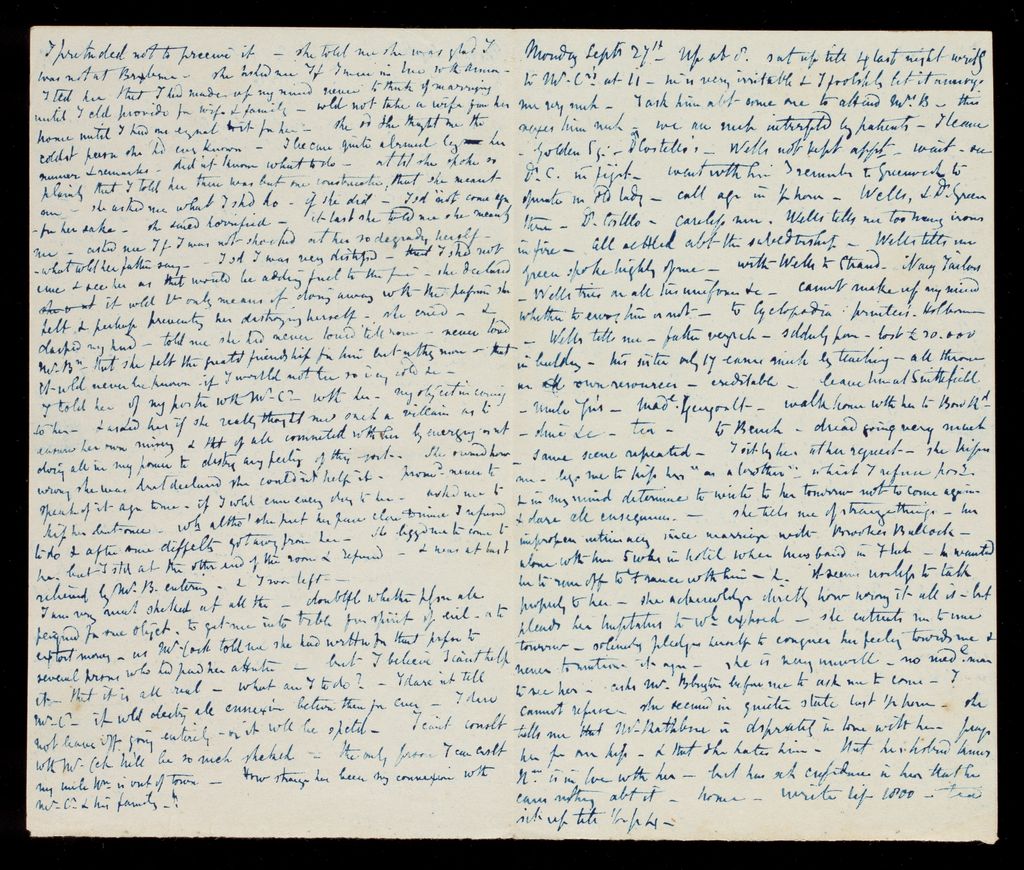 I pretended not to perceive it – she told me she was glad I
was not at – she asked me If I were in love wth anyone –
I told her that I had made up my mind never to think of marrying
until I cld provide for wife & family – wld not take a wife from her
home until I had one equal to it for her – she sd she thought me the
coldest person she had ever known – I became quite alarmed by her
manner & remarks – did not know what to do – at last she spoke so
plainly that I told her there was but one construction, that she meant
me – she asked me what I shd do – if she did – I sd not come again
for her sake – she seemed horrified – at last she told me she meant
me – asked me If I was not shocked at her so degrading herself –
– what wld her father say – I sd I was very distressed – that I shd not
come & see her as that would be adding fuel to the fire – she declared
it wld be only means of doing away wth the passion she
felt & perhaps preventing her destroying herself – she cried – &
clasped my hand – told me she had never loved till now – never loved
Mr. Bn. that she felt the greatest friendship for him but nothing more – that
it wld never be known – if I would not be so icy cold &c –
I told her of my position wth Mr. Cn – wth her – my object in coming
to her – & asked her if she really thought me such a villain as to
ensure her own misery & that of all connected wth her by encouraging or not
doing all in my power to destroy any feeling of this sort – She owned how
wrong she was but declared she couldn't help it – promd. never to
speak of it again to me – if I wold come every day to her – asked me to
kiss her but once – wh altho' she put her face close to mine I refused
to do & after some difficulty got away from her – She begged me to come to
her, but I std at the other end of the room & refused – & was at last
relieved by Mr. B. entering – & I soon left –
I am very much shocked at all this – doubtful whether pfson all
feigned for some object – to get me into trouble from spirit of evil – or to
extort money – as Mr Cock told me she had written for that purpose to
several persons who had paid her attention – but I believe I can't help
it – that it is all real – what am I to do? – I dare not tell
Mr. Cn – it wold destroy all connexion between them for ever – I dare
not leave off going entirely – or it will be – I can't consult
wth Mr. Cock he'll be so much shocked – the only person I can consult
my uncle Wm is out of town – How strange has been my connexion wth
Mr. Cn & his family –!!
Monday Septr 27th – Up at 8. sat up till 4 last night writg
to Mr. Cns at 11 – he is very irritable & I foolishly let it annoy
me very much – I ask him abt some one to attend Mr. B – this
vexes him much – we are much interrupted by patients – I leave
– Golden Sq: – D Costello's – Wells not kept appt – wait – see
Dr. C. – went with him to Greenwich to
operate on old lady – call again in ½ hour – Wells, & Dr. Green
there – Dr. Costello – careless man. Wells tells me too many irons
in fire – all settled abt the subeditorship – Wells tells me
Green spoke highly of me – with Wells to Strand – Navy Tailors
– Wells tries on all his uniforms &c – cannot make up my mind
whether to envy him or not – to Cyclopædia printers. Holborn
– Wells tells me – father very rich – suddenly poor – lost £20.000
in building – his sister only 17 earns much by teaching – all thrown
on own resources – creditable – leave him at Smithfield
– uncle Jn's – Made. Gengoult – walk home wth her to Bow Rd
– dine &c – tea – to Bench – dread going very much
– same scene repeated – I sit by her at her request – she kisses
me – begs me to kiss her "as a brother" – which I refuse
& in my mind determine to write to her tomorrow not to come again
& dare all consequences. – she tells me of strange things – her
improper intimacy since marriage with Brookes Bullock –
alone wth him 5 weeks in hotel when husband in – he wanted
her to run off to France wth him – &c. It seems useless to talk
properly to her – she acknowledges directly how wrong it all is – but
pleads her temptations to wh exposed – she entreats me to come
tomorrow – solemnly pledges herself to conquer her feelings towards me &
never to mention it again – she is very unwell – no medl man
to see her – asks Mr. before me to ask me to come – I
cannot refuse – she seemed in quieter state last ½ hour – she
tells me that Mr Rathbone is desperately in love with her – prays
her for one kiss – & that she hates him – that her husband knows
Rne is in love wth her – but has such confidence in her that he
cares nothing abt it – home – write life 1800 – tea
sit up till ½ past 4 –